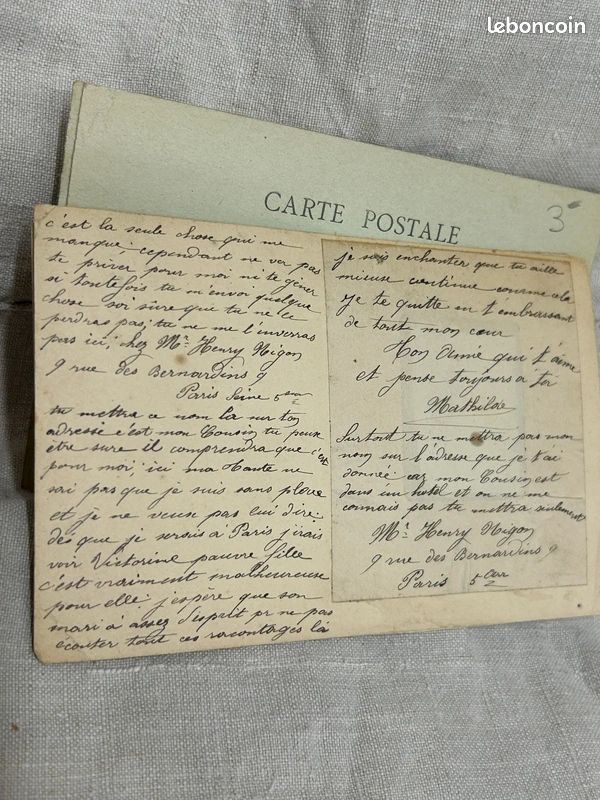 leboncoin
CARTE POSTALE
3
c'est la seule chose qui me
manque: cependant ne va pas
te priver pour moi ni te gener
si toutefois tu m'envoi quelque
chose soi sûre que tu ne le
perdras pas; tu ne me l'enverras
pas ici; chez Mr Henry Nigon
9 rue des Bernardins 9
Paris Seine 5
tu mettra ce nom la sur ton
adresse c'est mon Cousin tu peux
être sure il comprendra que c'est
pour moi; ici ma Tante ne
sai pas que je suis sans place
et je ne veux pas lui dire:
dès que je serais à Paris j'irais
voir Victorine pauvre fille
c'est vraiment malheureuse
pour elle: j'espère que son
mari à assez d'esprit pr ne pas
écouter tout ces racontages là
je suis enchanter que tu aille
mieuse continue comme cela
Je te quitte en t'embrassant
de tout mon cœur
Ton Amie qui t'aime
et pense toujours a toi
Mathilde
Surtout tu ne mettra pas mon
nom sur l'adresse que je t'ai
donnée car mon Cousin est
dans un hotel et on ne me
connais pas tu mettra seulement
Mr Henry Nigon
9 rue des Bernardins 9
Paris 5